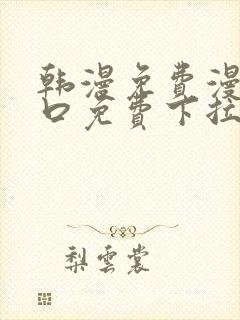 韩漫免费漫
口免费下拉
梨雲裳